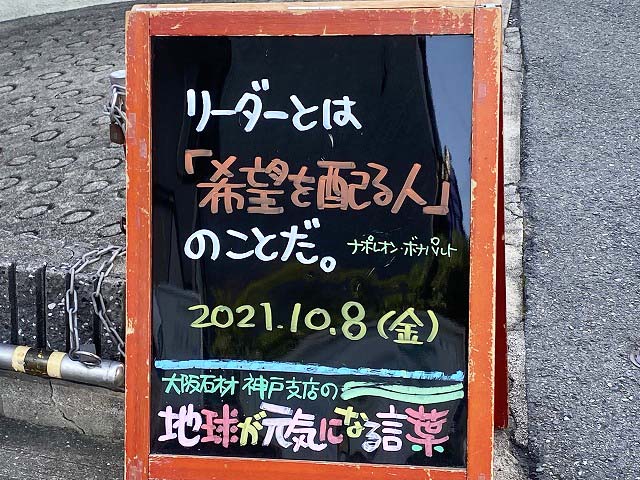 リーダーとは
「希望を配る人」
のことだ。 ナポレオン・ボナパルト
2021.10.8(金)
大阪石材 神戸支店の
地球が元気になる言葉